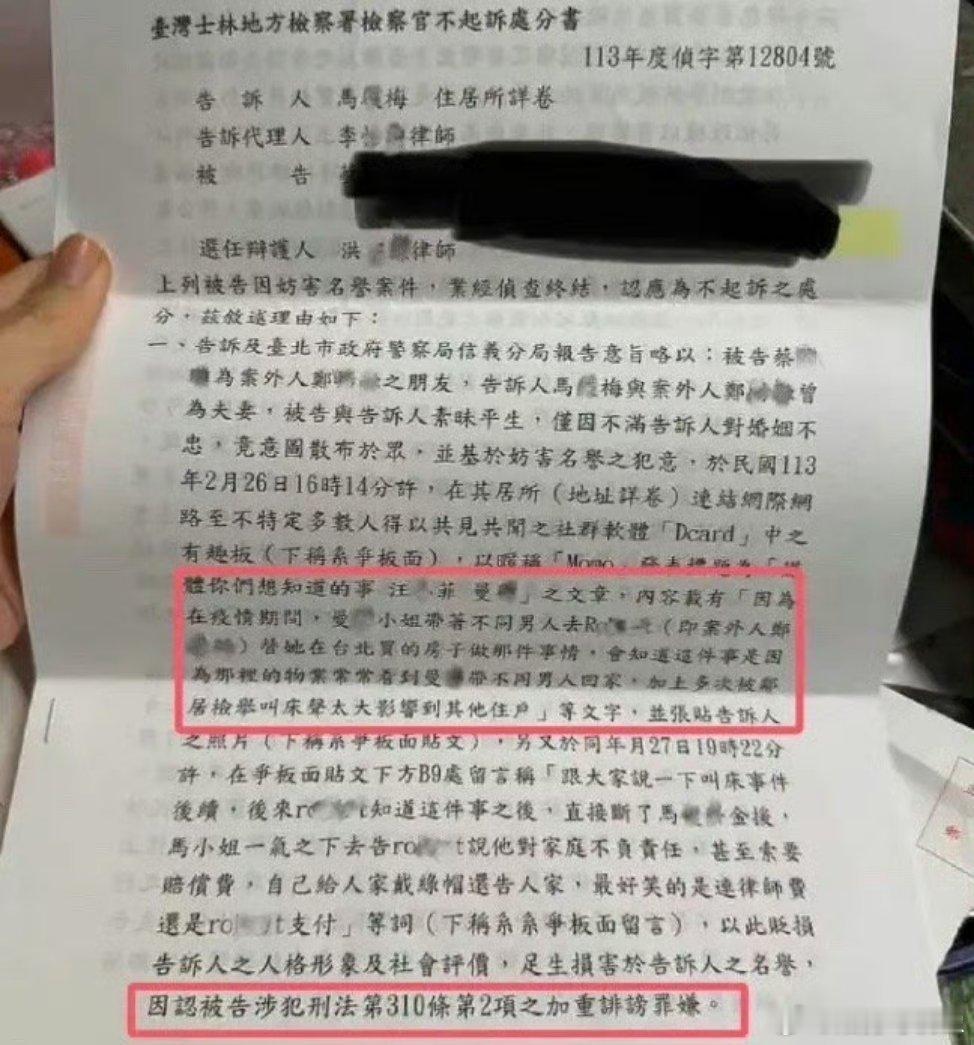 臺灣士林地方檢察署檢察官不起訴處分書
113年度偵字第12804號
告訴人 馬履梅 住居所詳卷
告訴代理人 李 律師
被告
選任辯護人 洪 律師
上列被告因妨害名譽案件，業經偵查終結，認應為不起訴之處
分，茲敘述理由如下：
一、告訴及臺北市政府警察局信義分局報告意旨略以：被告蔡
為案外人鄭 之朋友，告訴人馬 梅與案外人鄭 曾
為夫妻，被告與告訴人素昧平生，僅因不滿告訴人對婚姻不
忠，竟意圖散布於眾，並基於妨害名譽之犯意，於民國113
年2月26日16時14分許，在其居所（地址詳卷）連結網際網
路至不特定多數人得以共見共聞之社群軟體「Dcard」中之
有趣板（下稱系爭板面），以暱稱「Momo」發表標題為「
體你們想知道的事 汪 菲 曼 」之文章，內容載有「因為
在疫情期間，曼 小姐帶著不同男人去R （即案外人鄭
）替她在台北買的房子做那件事情，會知道這件事是因
為那裡的物業常常看到曼 帶不同男人回家，加上多次被鄰
居檢舉叫床聲太大影響到其他住戶」等文字，並張貼告訴人
之照片（下稱系爭板面貼文），另又於同年月27日19時22分
許，在爭板面貼文下方B9處留言稱「跟大家說一下叫床事件
後續，後來ro t知道這件事之後，直接斷了馬 金援，
馬小姐一氣之下去告ro t說他對家庭不負責任，甚至索要
賠償費，自己給人家戴綠帽還告人家，最好笑的是連律師費
還是ro t支付」等詞（下稱系系爭板面留言），以此貶損
告訴人之人格形象及社會評價，足生損害於告訴人之名譽，
因認被告涉犯刑法第310條第2項之加重誹謗罪嫌。